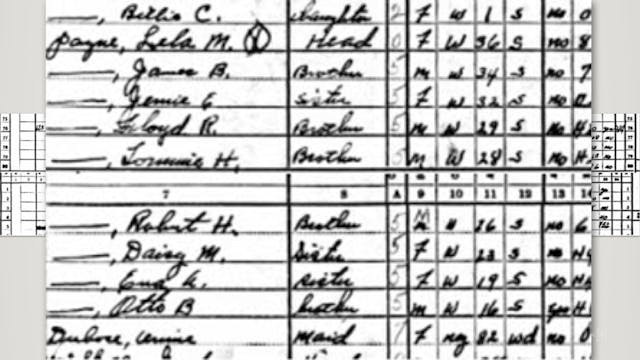 ——, Billie C. daughter 2 F W 1 S no 0
Payne, Lela M. Ⓧ Head 0 F W 36 S no 8
——, James B. Brother 5 M W 34 S no 7
——, Jennie E. Sister 5 F W 32 S no
——, Floyd R. Brother 5 M W 29 S no H
——, Lonnie H. Brother 5 M W 28 S no H
7 8 A 9 10 11 12 13 14
——, Robert H. Brother 5 M W 26 S no 6
——, Daisy M. Sister 5 F W 23 S no H4
——, A. Sister 5 F W 19 S no H4
——, Otto B brother 5 M W 16 S yes H
Dubose, maid 7 F neg 82 wd no 0